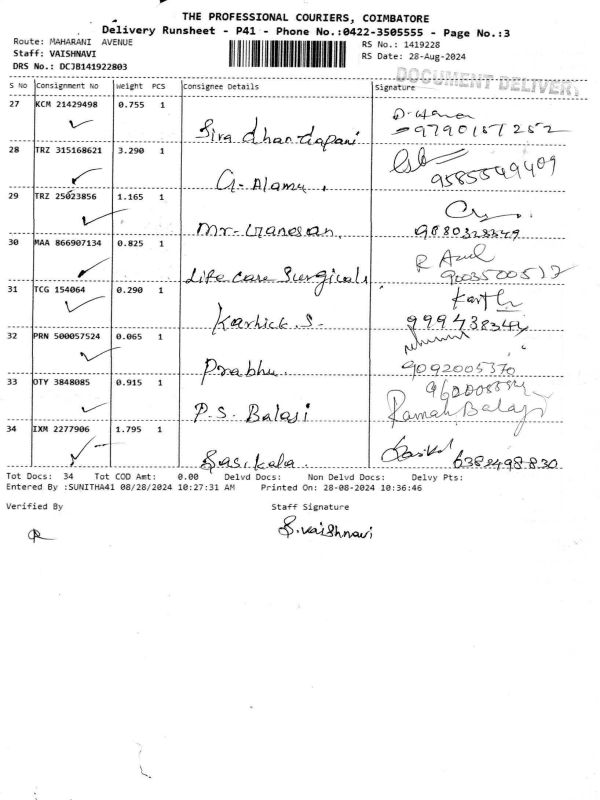 THE PROFESSIONAL COURIERS, COIMBATORE
Delivery Runsheet - P41 - Phone No.:0422-3505555 - Page No.:3
Route: MAHARANI AVENUE
RS No.: 1419228
Staff: VAISHNAVI
RS Date: 28-Aug-2024
DRS No.: DCJB141922803
DOCUMENT DELIVERY
S No Consignment No Weight PCS Consignee Details Signature
27 KCM 21429498 0.755 1
9790157252
28 TRZ 315168621 3.290 1
9585549409
G. Alamu.
29 TRZ 25023856 1.165 1
Mr. Ganesan.
30 MAA 866907134 0.825 1
Life care Surgicals
31 TCG 154064 0.290 1
Karthick. S.
32 PRN 500057524 0.065 1
Prabhu. 9092005370
33 OTY 3848085 0.915 1
P.S. Balaji Ramah Balaji
34 IXM 2277906 1.795 1
Sasikala. 6382498830
Tot Docs: 34 Tot COD Amt: 0.00 Delvd Docs: Non Delvd Docs: Delvy Pts:
Entered By :SUNITHA41 08/28/2024 10:27:31 AM Printed On: 28-08-2024 10:36:46
Verified By Staff Signature
S. Vaishnavi